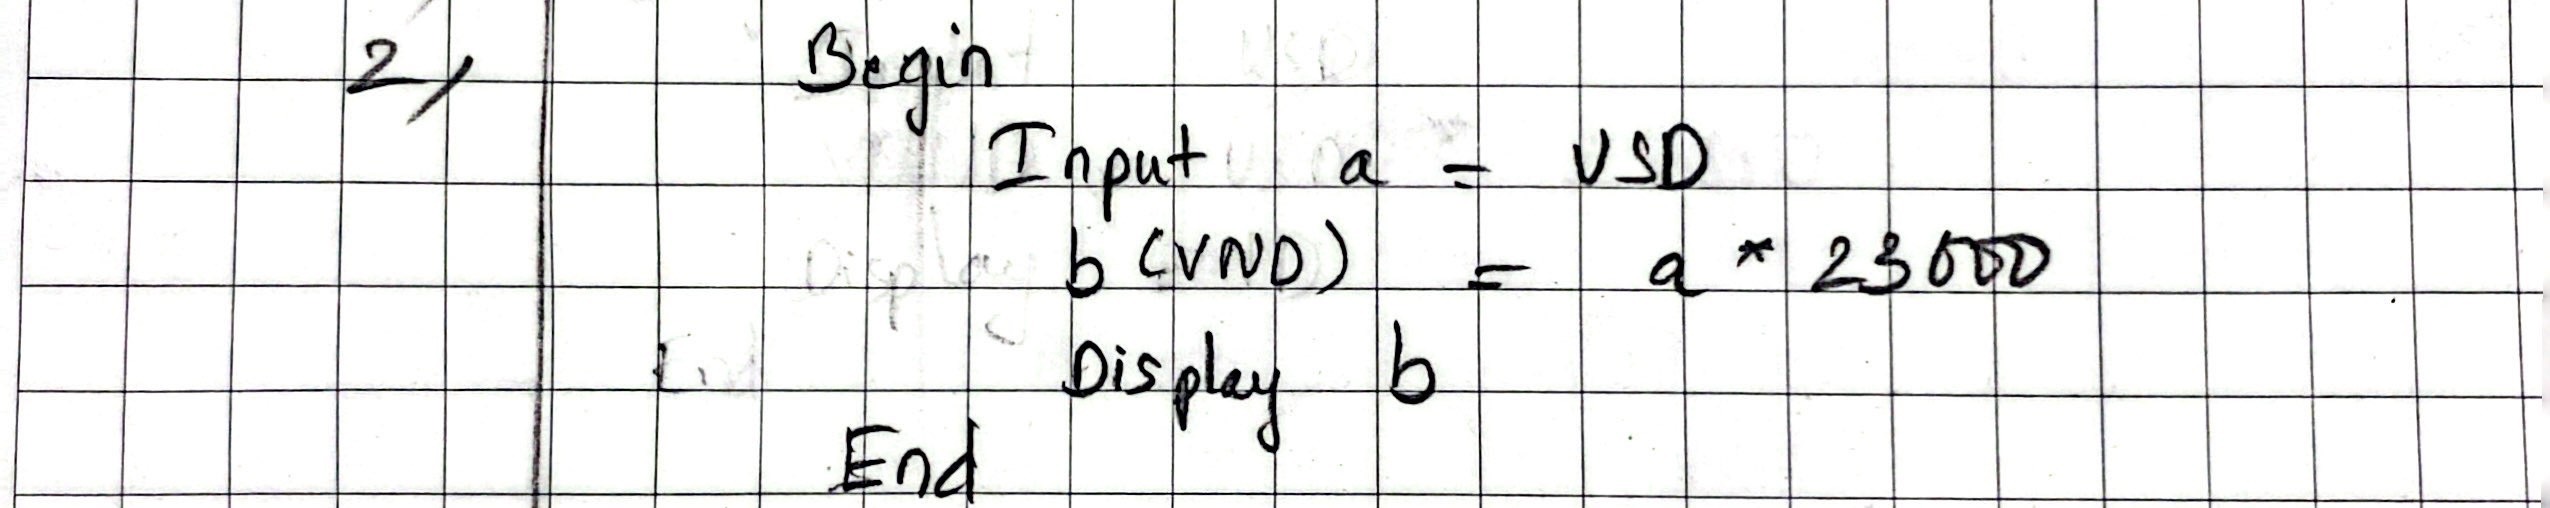 2/ Begin
Input a = USD
b (VND) = a * 23000
Display b
End